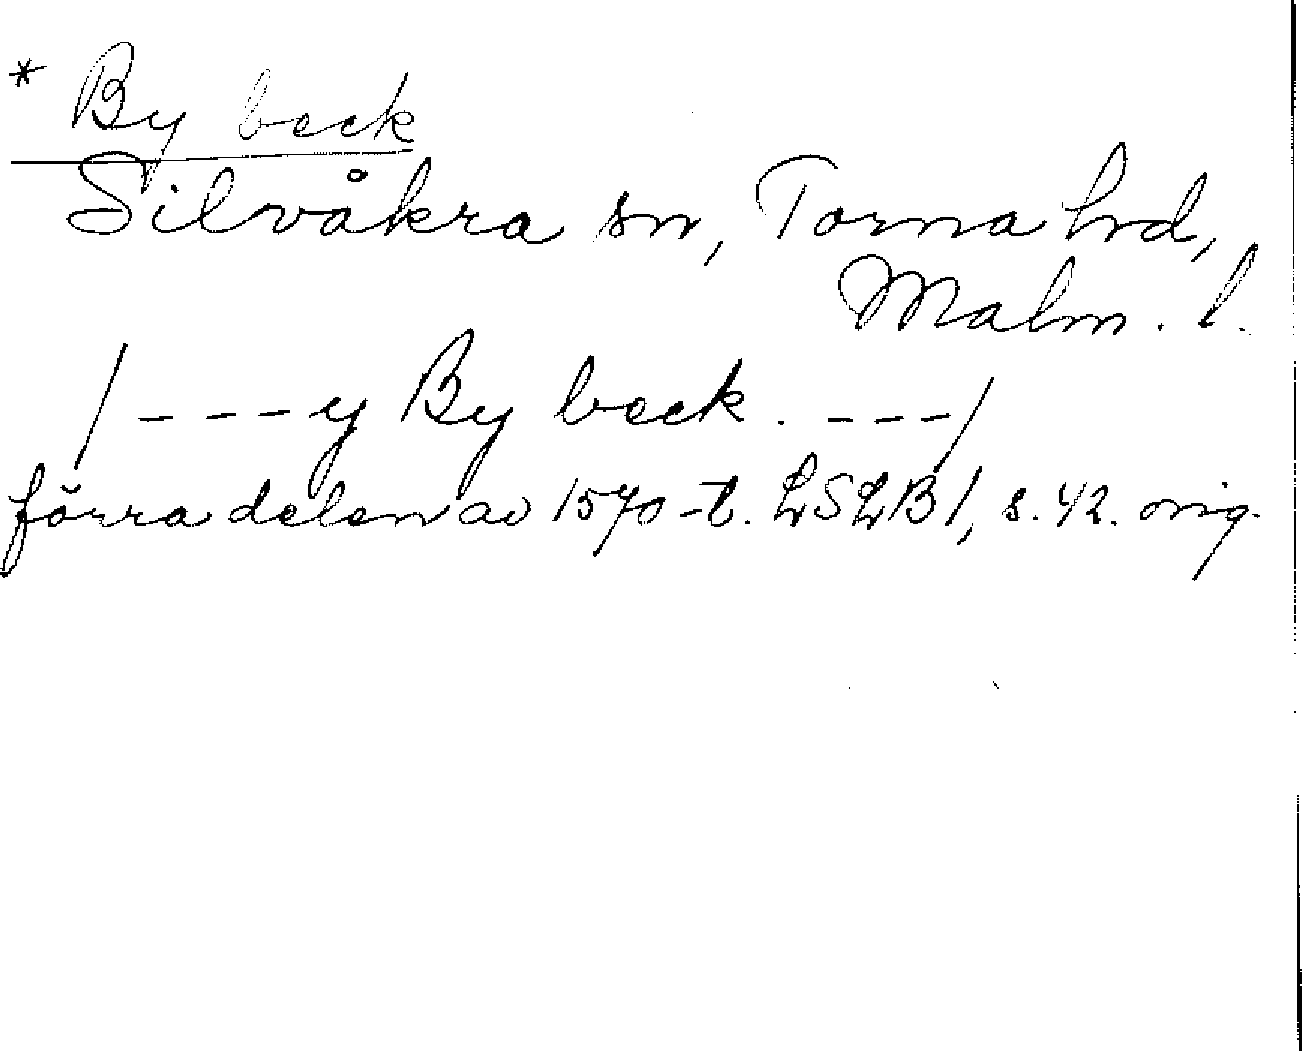 * By beck
Silvåkra sn, Torna hrd,
Malm. l.
/ - - - y By beck . - - - /
förra delen av 1570-t. LSLB 1, s. 42. orig.